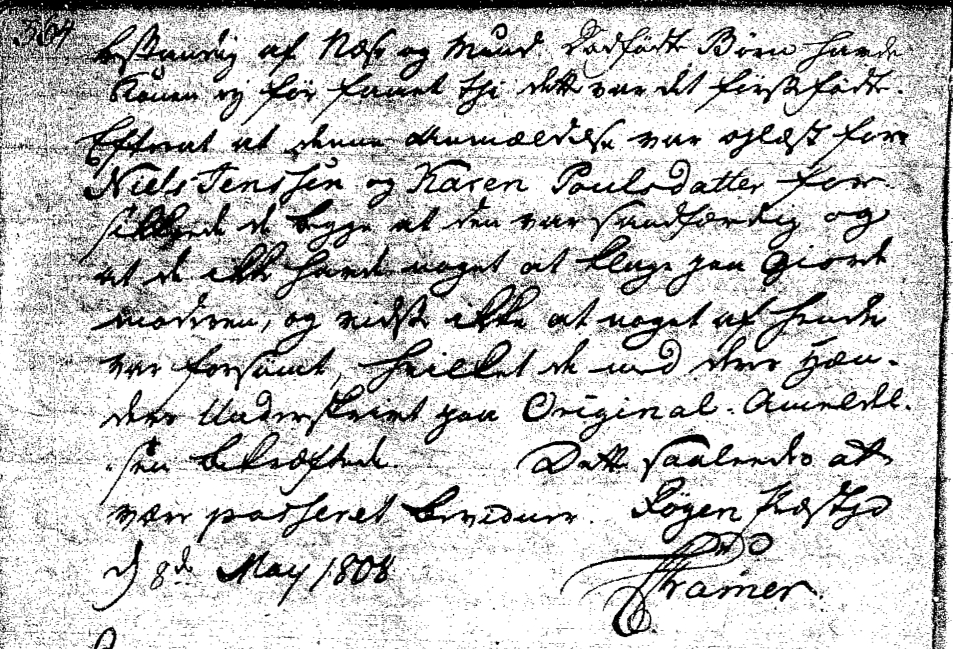 364
bestandig af Næse og Mund. Dødfødte Børn havde
Konen ej før fanet thi dette var det første fødte.
Efterat at denne Anmældelse var oplæst for
Niels Jenssen og Karen Poulsdatter for-
sikkrede de begge at den var sandfærdig og
at de ikke havde noget at klage paa Giorde
moderen, og vidste ikke at noget af hende
var forsømt, hvilket de med deres Hæn-
ders Underskrivt paa Original-Anmeldel-
sen bekræftede. Dette saaledes at
være passeret bevidner. Løgen Præstgd
d 8de May 1808
Kramer.